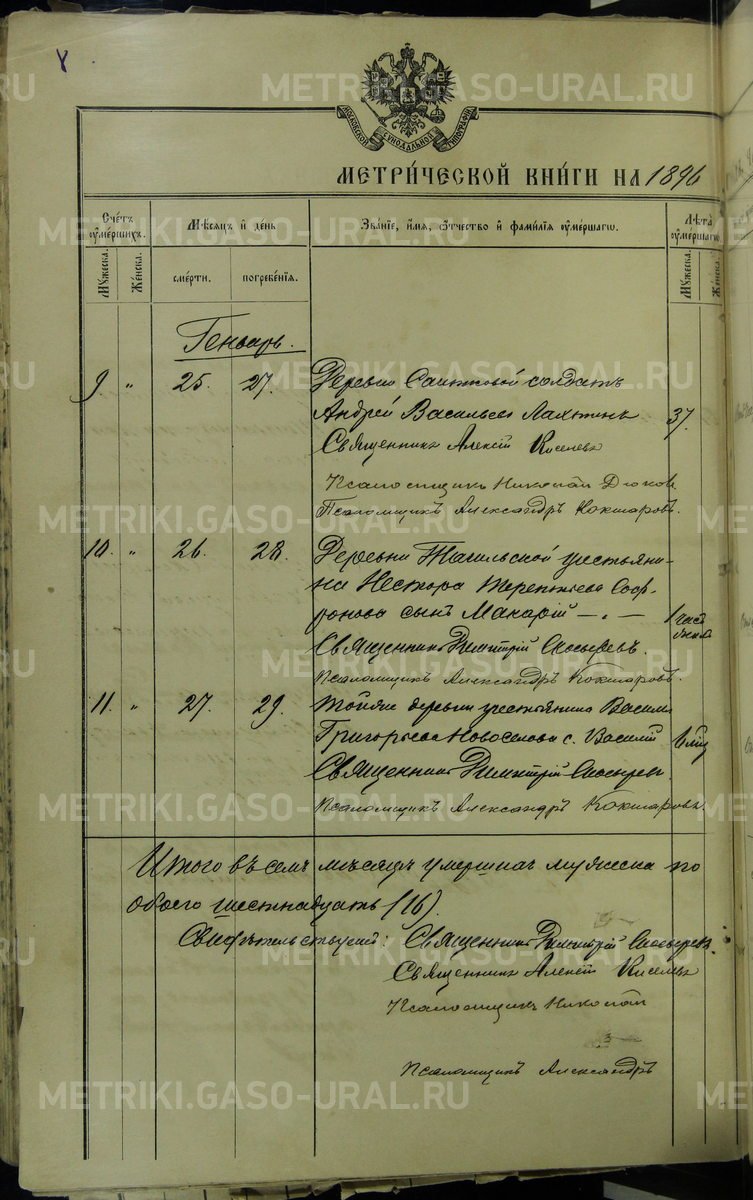 МОСКОВСКОЙ СѴНОДАЛЬНОЙ ТИПОГРАФІИ
МЕТРИ́ЧЕСКОЙ КНИ́ГИ НА 1896
Сче́тъ ᲂу҆ме́ршихъ.
Мѣ́сяцъ и҆ де́нь
Зва́нїе, и҆́мя, ѻ҆́тчество и҆ фамилїя ᲂу҆ме́ршагѡ.
Лѣ́та ᲂу҆ме́ршагѡ
Мꙋжеска. Же́нска.
сме́рти. погребе́нїѧ.
Мꙋжеска. Же́нска.
Генварь.
9 „ 25. 27. Деревни солдатъ
Андрей Васильевъ Лахтинъ 37.
Священникъ Алексій Киселевъ
Псаломщикъ Николай
Псаломщикъ Александръ Кокшаровъ.
10. „ 26. 28. Деревни Тагильской крестьяни-
на Нестора Терентьева Соф-
ронова сынъ Макарій
Священникъ Димитрій
Псаломщикъ Александръ Кокшаровъ.
11. „ 27. 29. Тойже деревни крестьянина Васил
Григорьева Новоселова с. Василій
Священникъ Димитрій
Псаломщикъ Александръ Кокшаровъ.
Итого въ семъ мѣсяцѣ умершихъ мужеска по
обоего шестнадцать (16).
Свидѣтельствуемъ: Священникъ Димитрій
Священникъ Алексій Киселевъ
Псаломщикъ Николай
Псаломщикъ Александръ
METRIKI.GASO-URAL.RU